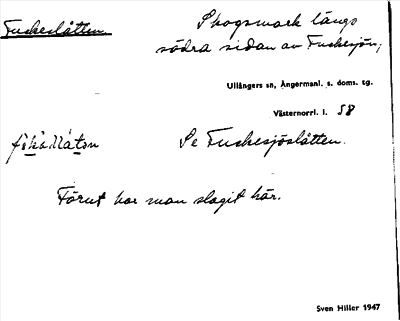 Fuskeslåtten.
Skogsmark längs
södra sidan av Fuskesjön;
Ullångers sn, Ångermanl. s. doms. tg.
Västernorrl. l. 58
Se Fuskesjöslåtten.
Förut har man slagit här.
Sven Hiller 1947